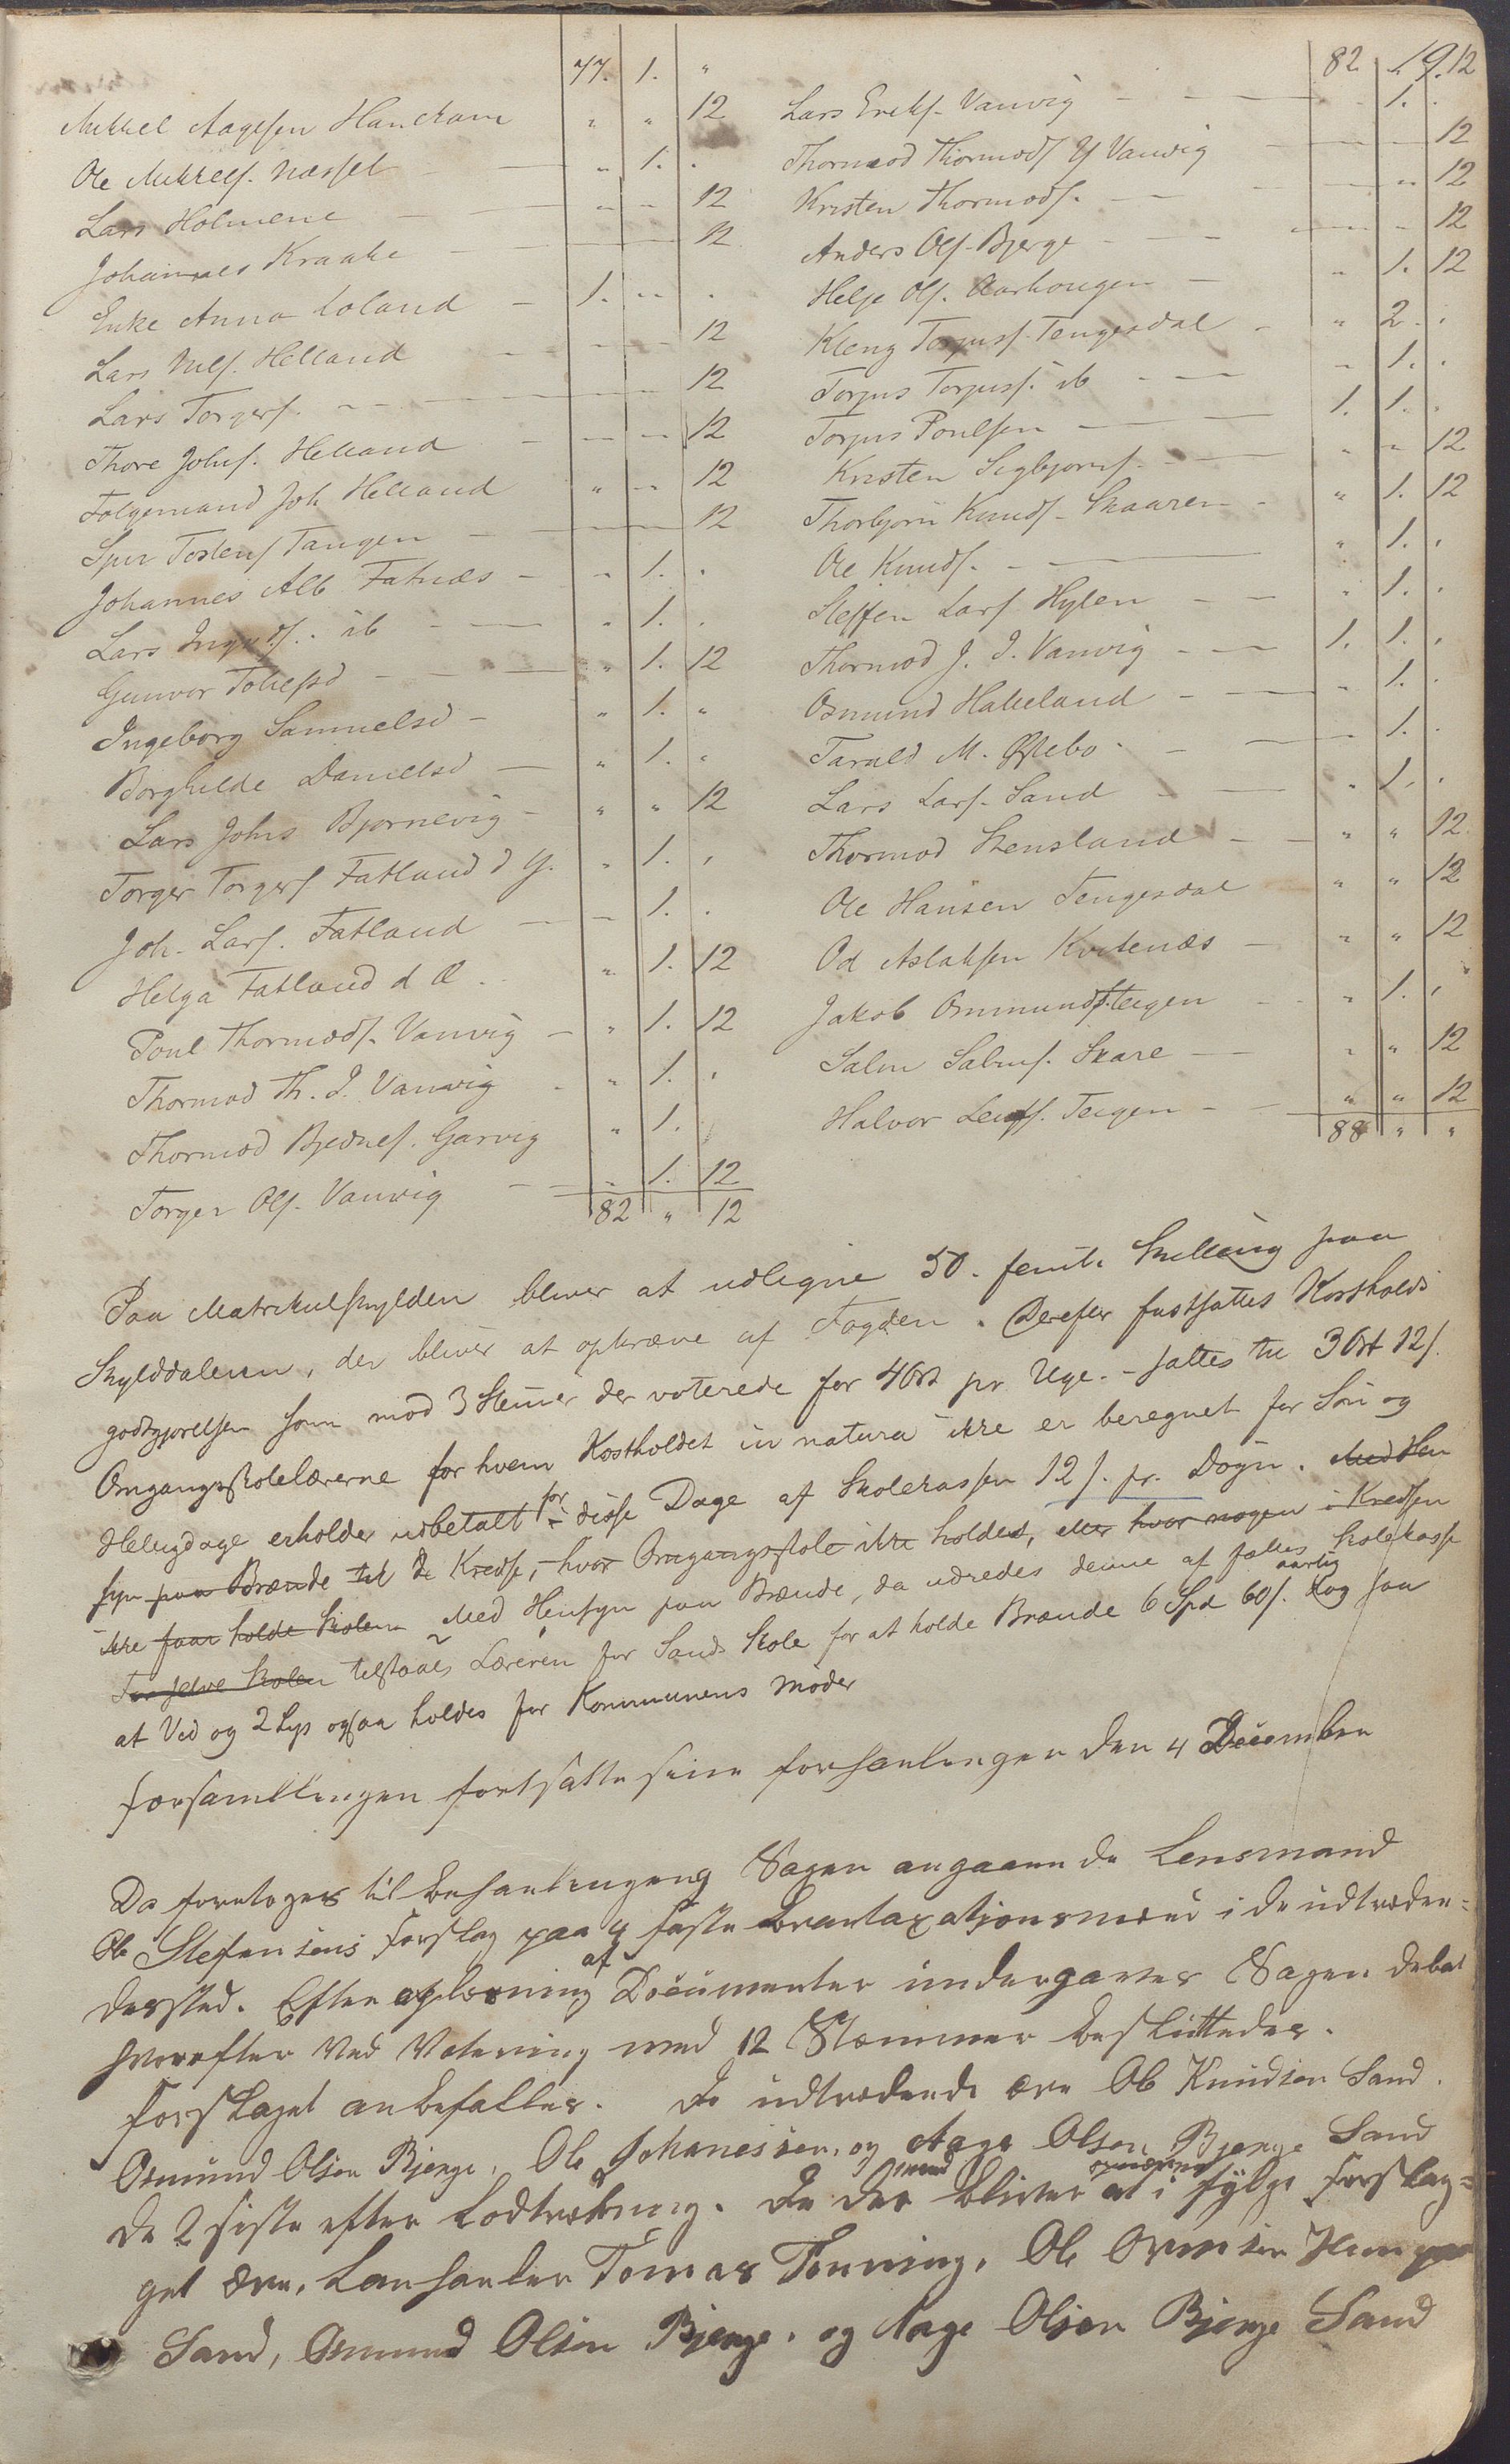 77. 1. "
Mikkel Aagesen Handeland " " 12
Ole Mikkels. Næsset " 1. .
Lars Holmene " " 12
Johannes Kraake 12
Enke Anna Loland 1. " .
Lars Nils. Helland 12
Lars Torgers. 12
Thore Johs. Helland 12
Folgemand Joh Helland " " 12
Tostens Tangen 12
Johannes Alb Fatnæs " 1. .
Lars ib " 1. .
Gunvor Tollefsd " 1. 12
Ingeborg Samuelsd " 1. "
Borghilde Danielsd " 1. "
Lars Johs Bjørnevig " " 12
Torger Torgers. Fatland d Y. " 1. .
Joh. Lars. Fatland " 1. .
Helga Fatland d Æ. " 1. 12
Poul Thormods. Vanvig " 1. 12
Thormod Th. I. Vanvig " 1. .
Thormod Bjednes. Garvig " 1.
Torger Ols. Vanvig " 1. 12
82 " 12
82 " 12
19.
Lars Eriks. Vanvig 1. .
Thormod Thormods Y Vanvig 12
Kristen Thormods. " 12
Anders Ols. Bjerge " 12
Helje Ols. Aarhougen " 1. 12
Kleng Torpuss. Tengesdal " 2. .
Torpus Torpuss. ib " 1. .
Torpus Poulsen 1. 1. .
Kristen Sigbjørns. " " 12
Thorbjørn Knuds. Skaaren " 1. 12
Ole Knuds. " 1. .
Steffen Lars. Hylen " 1. .
Thormod J. I. Vanvig 1. 1. .
Osmund Hakeland " 1. .
Tarald M. Østebø " 1. .
Lars Lars. Sand " 1. .
Thormod Stensland " " 12
Ole Hansen Tengesdal " " 12
Od Aslaksen Kvitenæs " " 12
Jakob Ommunds. Teigen " 1. .
Salm Salms. Skare " " 12
Halvor Leifs. Teigen " " 12
88 " "
Paa Matrikulskylden bliver at udligne 50. femti Skilling paa
Skylddaleren, der bliver at opkræve af Fogden. Derefter fastsattes Kostholds
godtgjørelsen som mod 3 Stemer der voterede for 4 Ort pr Uge. - sattes til 3 Ort 12 s.
Omgangsskolelærerne for hvem Kostholdet in natura ikke er beregnet for Søn og
Helligdage erholder udbetalt for disse Dage af Skolekassen 12 s. pr. Døgn. Med Hen
syn paa Brænde til de Kredse, hvor Omgangsskole ikke holdes, eller hvor nogen i Kredsen
ikke faar holde Skolen Med Hensyn paa Brænde, da udredes denne af fælles Skolekasse
For selve Skolen tilstaaes Læreren for Sands Skole for at holde Brænde aarlig 6 Spd 60 s. dog saa
at Ved og 2 Lys ogsaa holdes for Kommunens Møder
Forsamlingen fortsatte sine forhandlinger den 4 December
Da foretoges til behandlingeng Sagen angaaende Lensmand
Ole Stefensens forslag paa 4 faste brantaxationsmend i de udtræden-
des sted. Efter oplæsning af Documenter undergaves Sagen debat
hvorefter ved Votering med 12 Stemmer besluttedes.
forslaget anbefalles. De udtrædende ere Ole Knudsen Sand.
Osmund Olsen Bjerge, Ole Johanesen, og Aage Olsen Bjerge Sand
de 2 siste efter Lodtrækning. De der bliver at i følge forslag-
get ere, Lanhandler Tomas Tønning, Ole Ormsen
Sand, Osmund Olsen Bjerge, og Aage Olsen Bjerge Sand